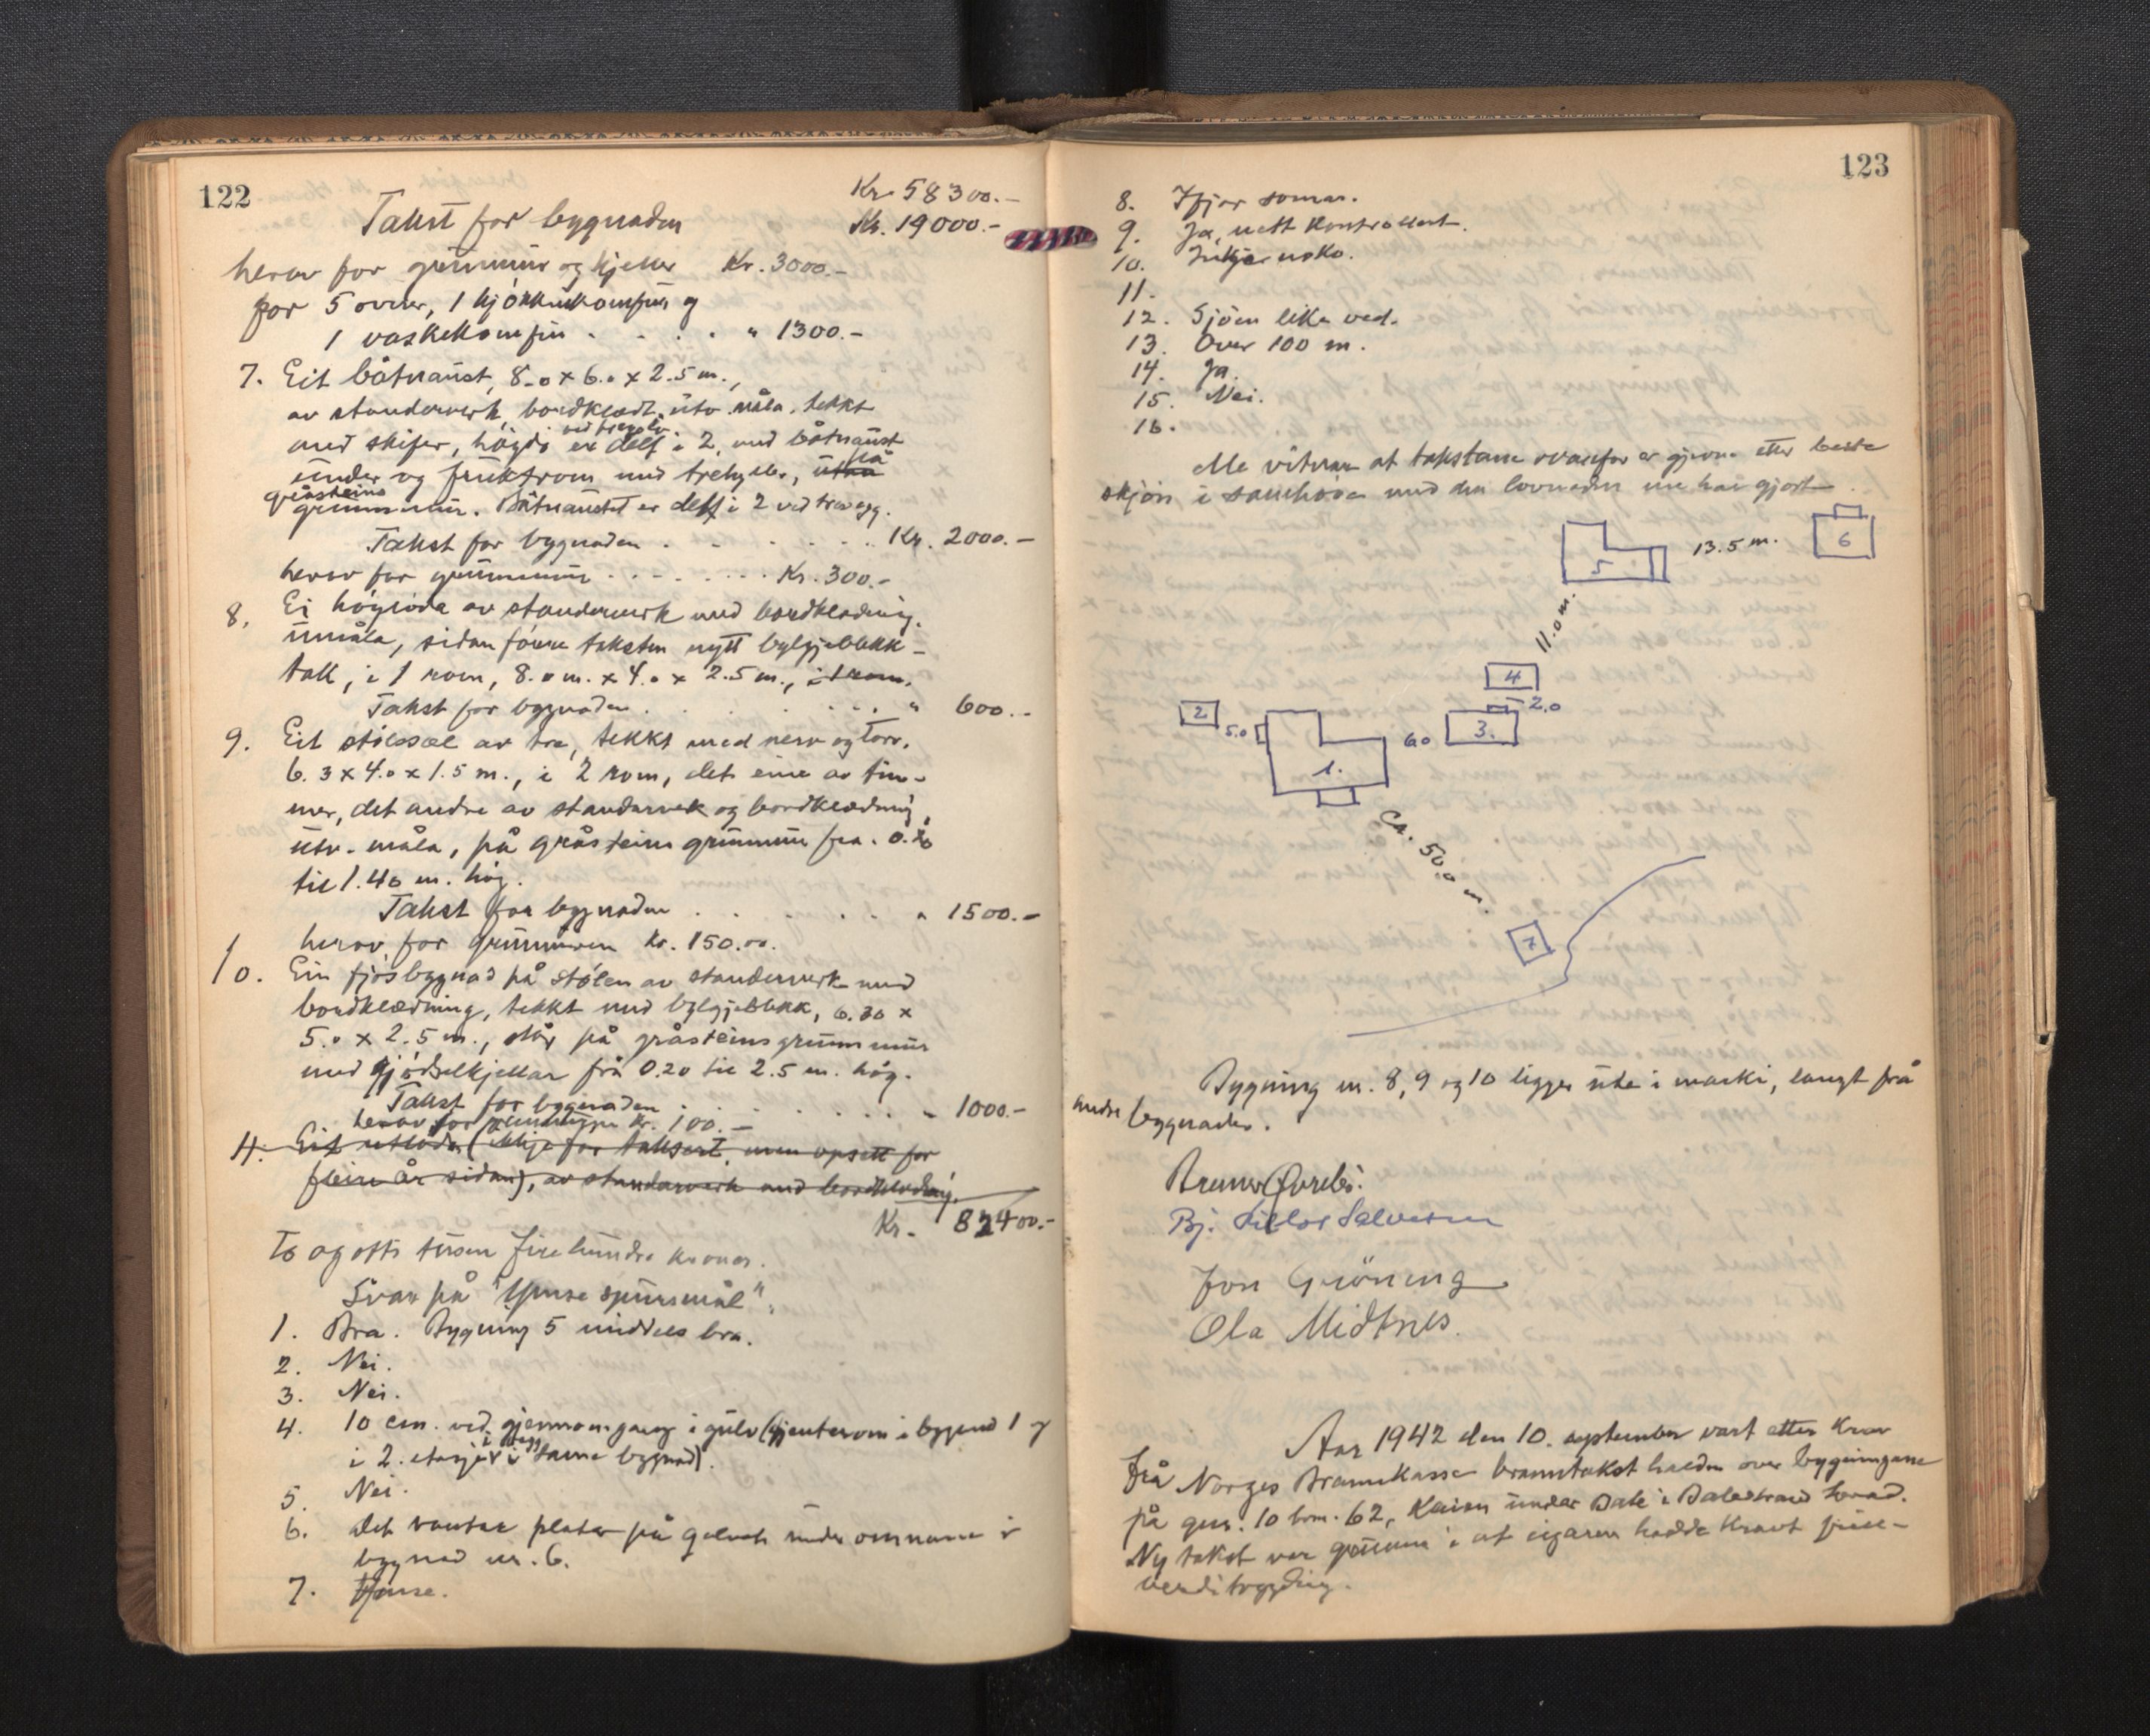 122
Kr. 58300.-
Takst for bygnaden Kr. 19000.-
herav for grunnmur og kjeller Kr. 3000.-
for 5 ovner, 1 kjökkenkomfur og
1 vaskekomfur . . . . " 1300.-
7. Eit båtnaust, 8.0 x 6.0 x 2.5 m.,
av standerverk, bordklædt, utv. måla, tekkt
med skifer, högdi er delt ved tregolv i 2, med båtnaust
under og fruktrom med trehyller, utha på
gråsteins
grunnmur. Båtnaustet er delt i 2 ved trevegg.
Takst for bygnaden . . . . . . Kr. 2000.-
herav for grunnmur . . . . . . . Kr. 300.-
8. Ei höyløda av standerverk med bordklædning,
umåla, sidan förre taksten nytt bylgjeblekk-
tak, i 1 rom, 8.0 m. x 4.0 x 2.5 m., i 1 rom.
Takst for bygnaden . . . . . . " 600.-
9. Eit stölssel av tre, tekkt med never og torv,
6.3 x 4.0 x 1.5 m., i 2 rom, det eine av tim-
mer, det andre av standarverk og bordklædning,
utv. måla, på gråsteins grunnmur fra
til 1.40 m. hög.
Takst for bygnaden . . . . . . " 1500.-
herav for grunnmuren Kr. 150.00.
10. Ein fjösbygnad på stölen av standerverk med
bordklædning, tekkt med bylgjeblekk, 6.30 x
5.0 x 2.5 m., står på gråsteins grunnmur
med gjödselkjellar frå 0.20 til 2.5 m. hög.
Takst for bygnaden . . . . . . " 1000.-
herav for grunnmuren Kr. 100.-
11. Eit utløda (ikkje för taksert, men opsett for
fleire år sidan), av standarverk med bordklædning.
Kr. 82400.-
To og otti tusen fire hundre kroner.
Svar på "Ymse spursmål".
1. Bra. Bygning 5 middels bra.
2. Nei.
3. Nei.
4. 10 cm. ved gjennomgang i gulv (gjenterom i bygnad 1 og
i 2. etasje i vegg i same bygnad).
5. Nei.
6. Det vantar plater på golvet under omnane i
bygnad nr. 6.
7. Ymse.
123
8. Ifjor somar.
9. Ja, nett kontrollert.
10. Inkje noko.
11.
12. Sjöen like ved.
13. Over 100 m.
14. Ja.
15. Nei.
16.
Me vitnar at takstane ovanfor er gjevne etter beste
skjön i samhöve med den lovnaden me har gjort.
5 13.5 m. 6
11.0 m.
4
2 5.0 1. 6.0 3. 2.0
Ca. 50.0 m.
7
Bygning nr. 8, 9 og 10 ligger ute i marki, langt frå
andre bygnader.
Brunor Övrebö.
Bj. Sillor Salvesen
Jon Gröning
Ola Midtnes.
Aar 1942 den 10. september vart etter krav
frå Norges Brannkasse branntakst halden over bygningane
på gnr. 10 brn. 62, Kaien under Bale i Balestrand herad.
Ny takst var grunna i at eigaren hadde kravt full-
verditrygding.